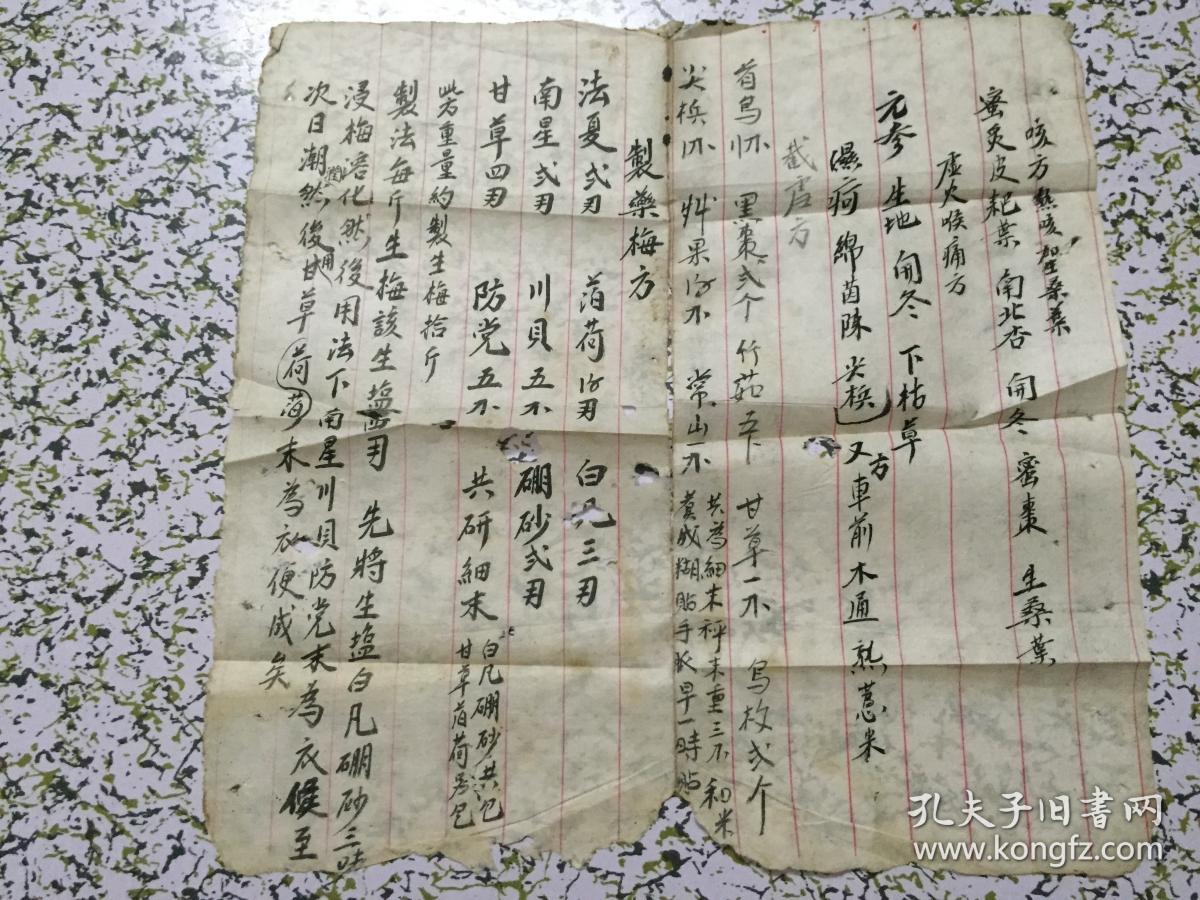 咳方 熱咳加生桑葉
蜜炙皮耙葉 南北杏 開冬 蜜棗 生桑葉
虛火喉痛方
元參 生地 開冬 下枯草
濕疴 綿茵陳 尖梹 又方 車前 木通 熟薏米
截虐方
首烏 黑棗弍个 竹茹五卜 甘草一 烏枚弍个
尖梹 艸果 常山一 共為細末秤末重三 和米
煑成糊貼手脈早一時貼
製藥梅方
法夏弍刄 萡荷 白凡三刄
南星弍刄 川貝五 硼砂弍刄
甘草四刄 防党五 共研細末 白凡硼砂共包
甘草萡荷另包
此方重量約製生梅拾斤
製法每斤生梅該生塩 先將生塩白凡硼砂三味
浸梅溶化然後用法下南星川貝防党末為衣候至
次日潮潤然後用甘草荷萡末為衣便成矣
孔夫子旧書网
www.kongfz.com